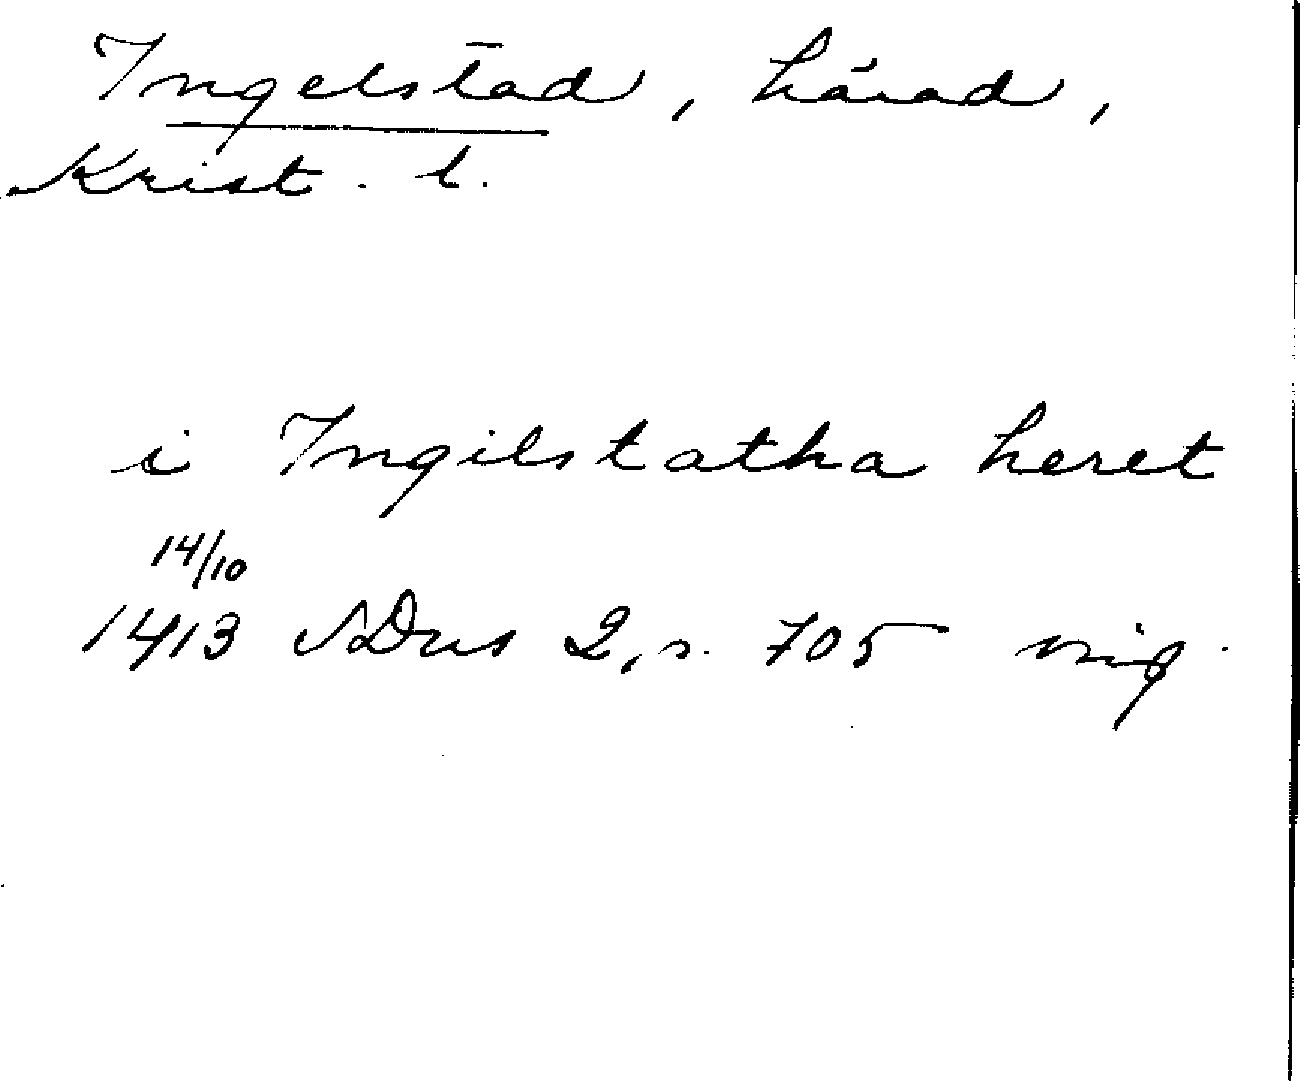 Ingelstad, härad,
Krist. l.
i Ingilstatha heret
14/10
1413 SDns 2, s. 705 orig.